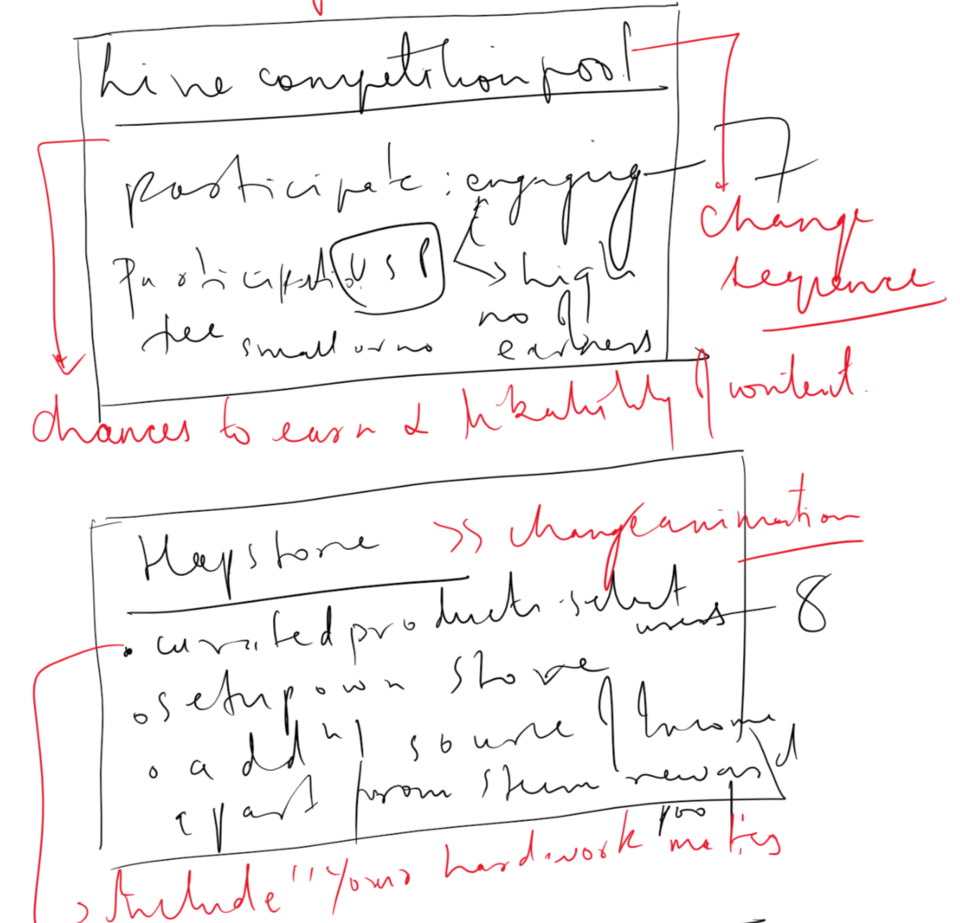 Live competition pool
participate : engaging 7
change
sequence
Participation USP > high
fee small or no no of earners
chances to earn & likability of content.
Hapstore >> change animation
• curated products - select users 8
o setup own store
o add'l source of Income
apart from steem reward pool
> Include "Your hardwork matters